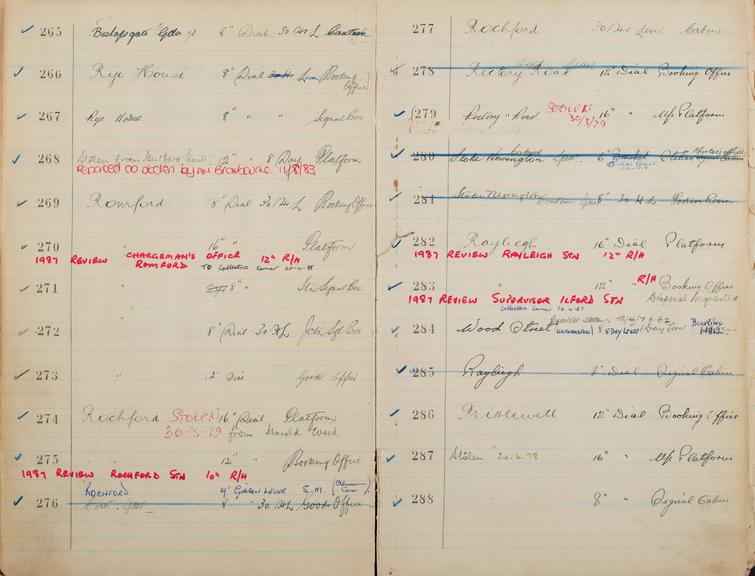 265 Bishopsgate Gds 8" Dial 30 Hr L Canteen
266 Rye House 8" Dial 30 Hr L Booking Office
267 Rye House 8" " Signal Box
268 Stolen from 12" 8 Day Platform
Reported as stolen by AM Broxbourne 11/8/83
269 Romford 8" Dial 30 Hr L Booking Office
270 " 16" Platform
1987 REVIEW CHARGEMAN'S OFFICE 12" R/H
ROMFORD TO Collectors Corner
271 " 8" " Signal Box
272 " 8" Dial 30 H L Sgl Box
273 " 12" Dial Goods Office
274 Rochford STOLEN 16" Dial Platform
30-3-79 from Harold Wood
275 " 12" Booking Office
1987 REVIEW ROCHFORD STN 10" R/H
ROCHFORD 9" LEVER S.M.
276 8" 30 H L Goods Office
277 Rochford 30 Hr Lever Cabin
278 Rectory Road 12" Dial Booking Office
279 Rectory Road STOLEN 16" " Up Platform
30/3/79
280 Stoke Newington 6" Bracket
281 Stoke Newington 8" 30 H L Porters Room
282 Rayleigh 16" Dial Platforms
1987 REVIEW RAYLEIGH STN 12" R/H
283 " 12" R/H Booking Office
1987 REVIEW SUPERVISOR ILFORD STN Disposal requested
Collectors Corner
284 Wood Street 8" 8 DAY LEVER Day Lever Booking Hall
285 Rayleigh 8" Dial Signal Cabin
286 Prittlewell 12" Dial Booking Office
287 Stolen 24.6.78 16" " Up Platform
288 8" " Signal Cabin